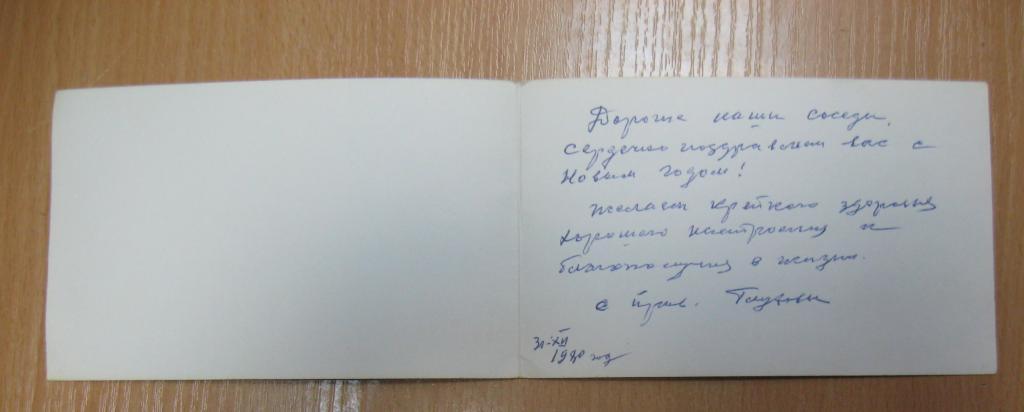 Дорогие наши соседи,
сердечно поздравляем вас с
Новым годом!
Желаем крепкого здоровья
хорошего настроения и
благополучия в жизни.
с прив.
31-XII
1980 год